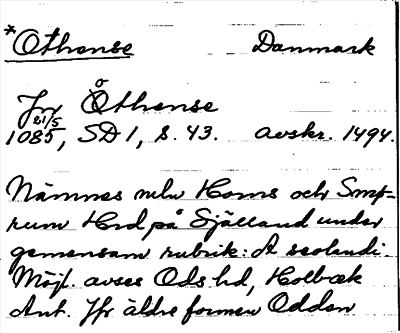 *Othense Danmark
Jfr Othense
21/5
1085, SD 1, s. 43. avskr. 1494.
Nämnes mlw Horns och Smø-
rum Hrd på Själland under
gemensam rubrik: A seolendi.
Möjl. avses Ods hd, Holbæk
Amt. Jfr äldre formen Odden